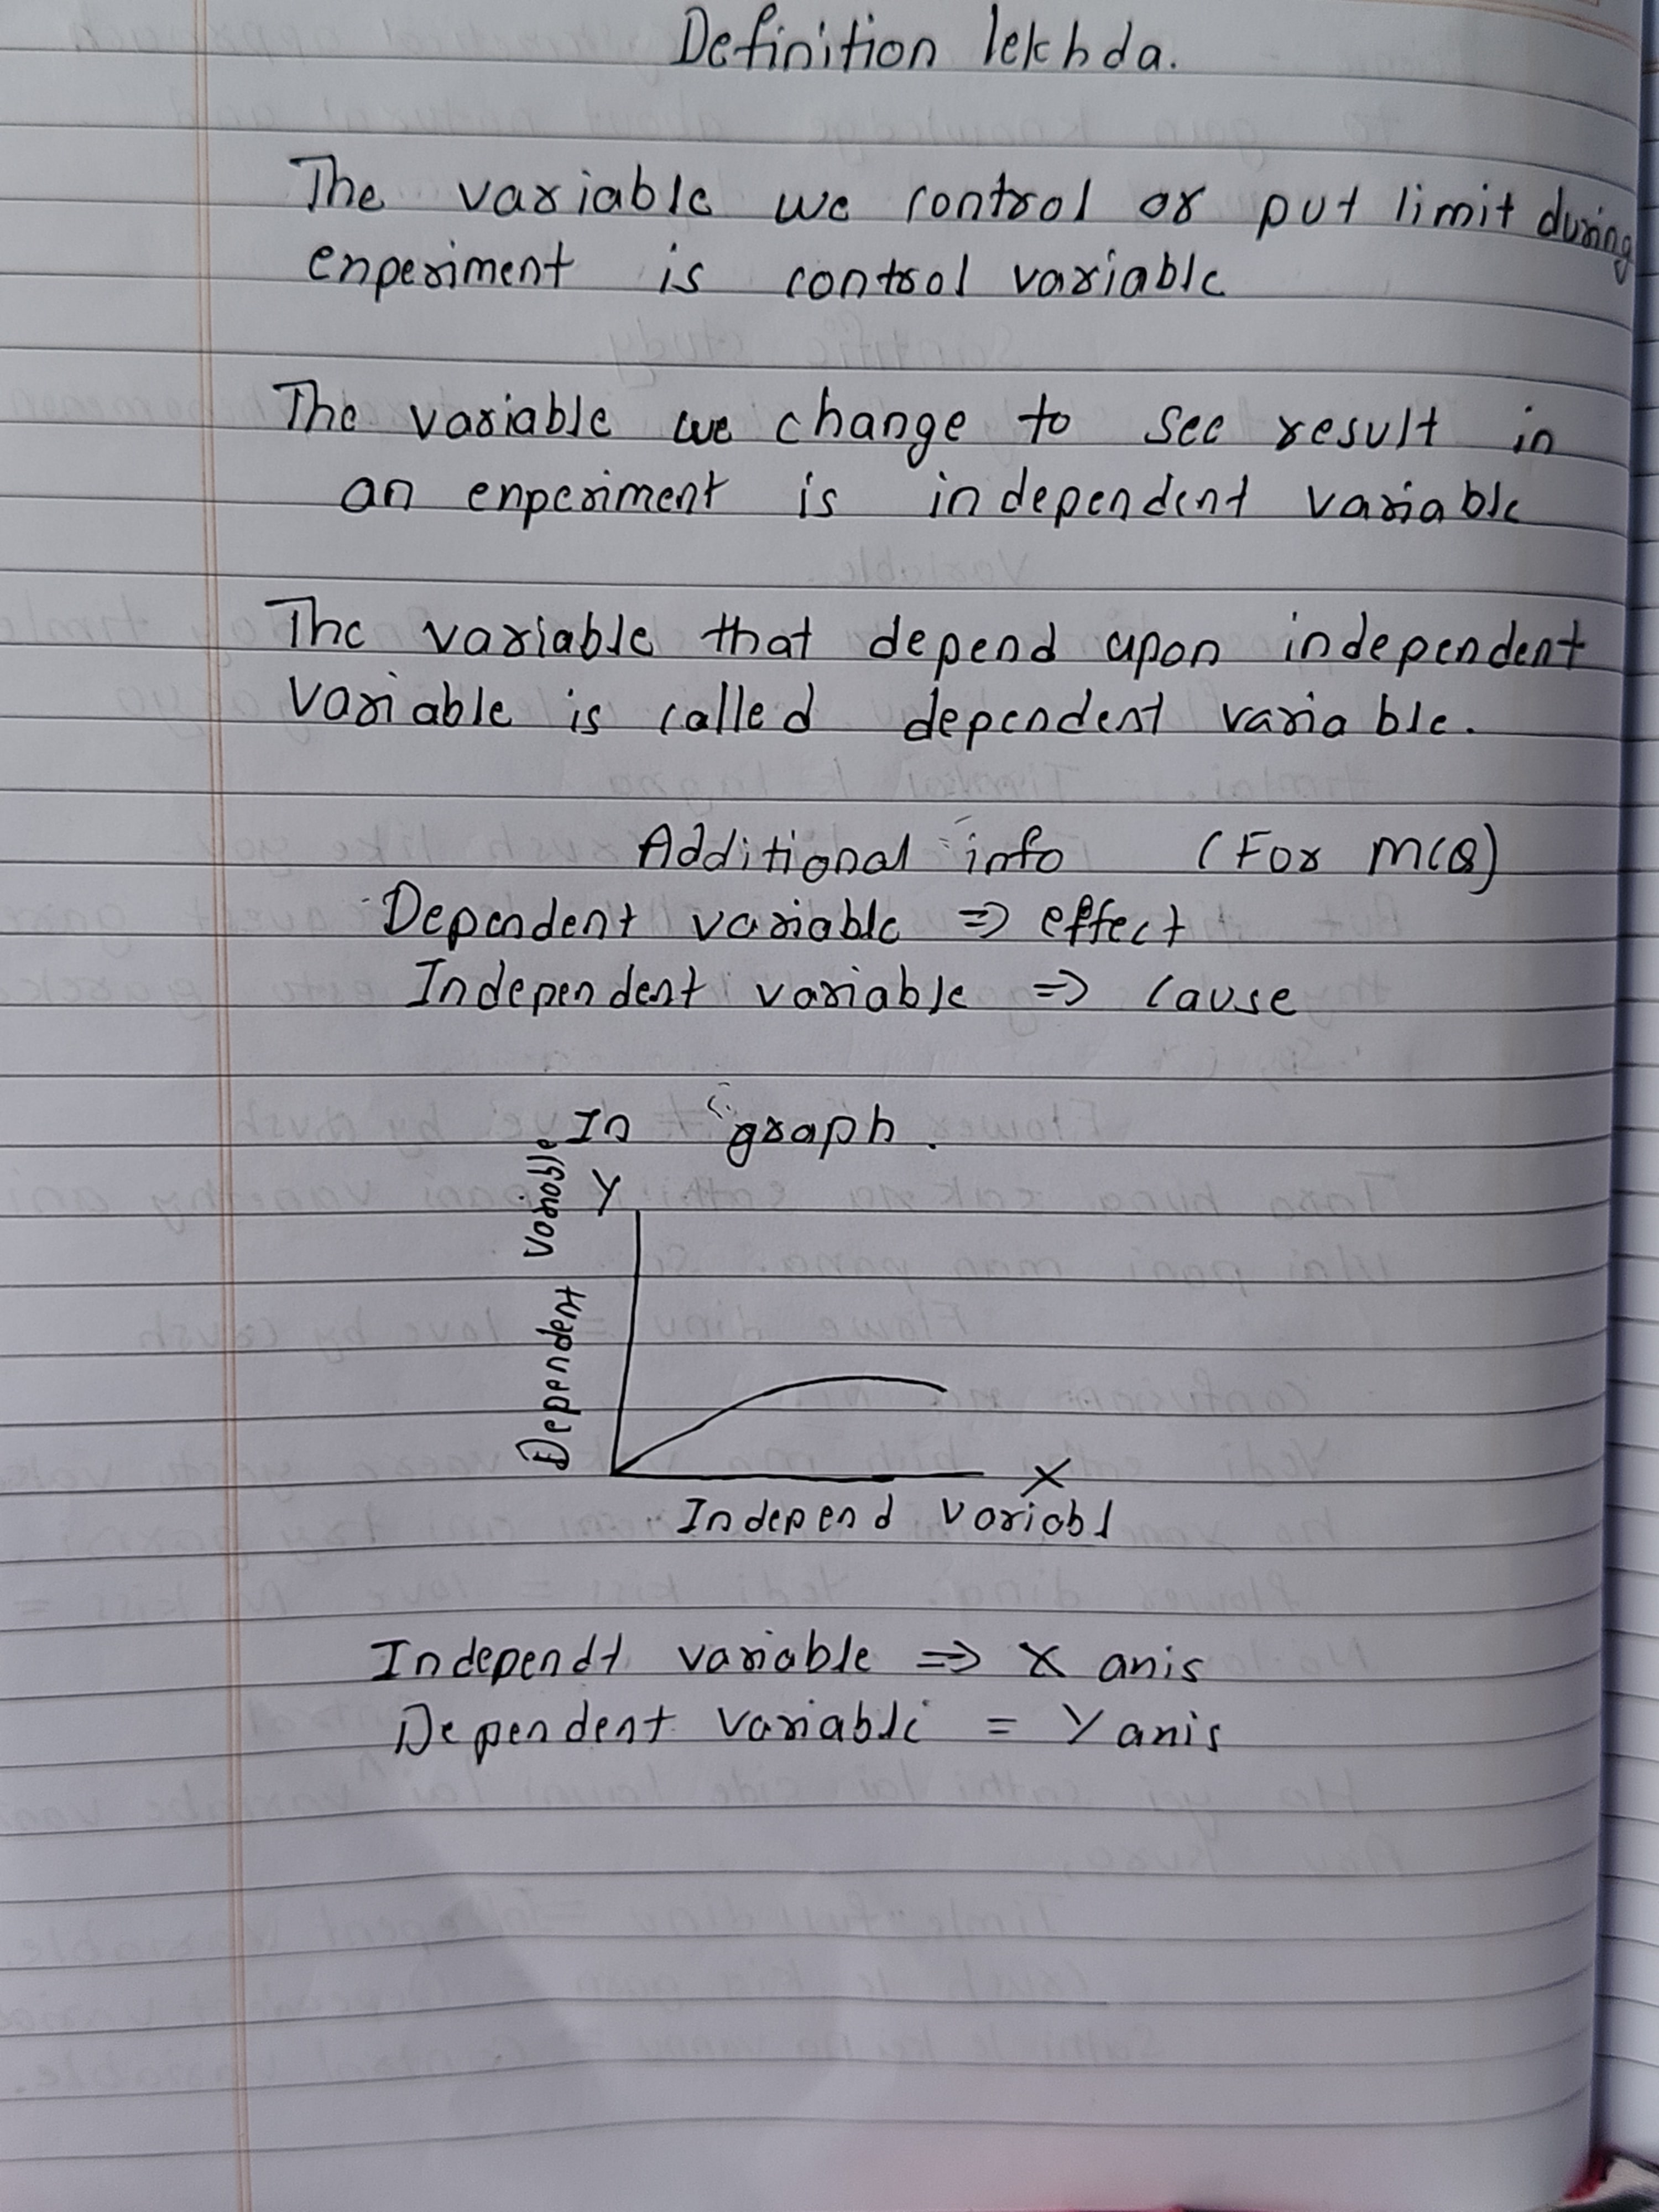 Definition lekhda.
The variable we control or put limit during
enperiment is control variable
The variable we change to see result in
an enperiment is independent variable
The variable that depend upon independent
variable is called dependent variable.
Additional info (For MCQ)
Dependent variable => effect
Independent variable => cause
In graph.
Y
Dependent Variable
X
Independ Variabl
Independt variable => X anis
Dependent variable = Y anis